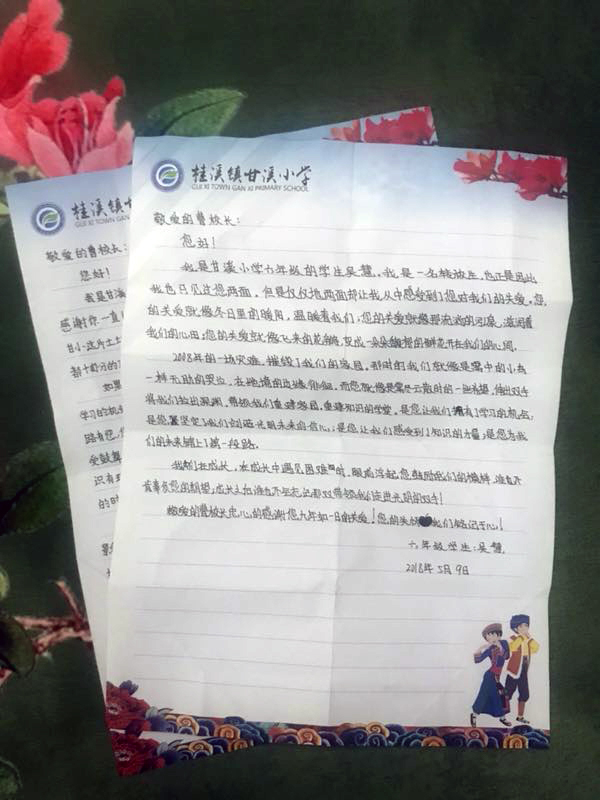 桂溪镇甘溪小学
GUI XI TOWN GAN XI PRIMARY SCHOOL
敬爱的曹校长：
您好！
我是甘溪小学六年级的学生吴慧，我是一名转校生，也正是因此
我也只见过您两面，但是仅仅地两面却让我从中感受到了您对我们的关爱，您
的关爱就像冬日里的暖阳，温暖着我们；您的关爱就像那流淌的河流，滋润着
我们的心田；您的关爱就像飞来的花瓣，变成一朵朵的鲜花开在我们的心间。
2008年的一场灾难，摧毁了我们的家园，那时的我们就像是雾中的小鸟
一样无助的哭泣，在绝境的边缘徘徊。而您就像是雾尽云散时的一抹希望，伸出双手
将我们拉出深渊，带领我们重建家园，重建知识的学堂，是您让我们拥有了学习的机会；
是您坚定了我们对走光明未来的信心；是您让我们感受到了知识的力量；是您为我
们的未来铺上了第一段路。
我们在成长，在成长中遇见困难时，眼前浮起您鼓励我们的模样，谁也不
辜负您的期望，成长之中谁也不会忘记那双带领我们走出光明的双手！
敬爱的曹校长衷心的感谢您九年如一日的关爱！您的关怀我们铭记于心！
六年级学生：吴慧
2018年5月9日
桂溪镇甘
GUI XI TOWN GAN
敬爱的曹校长：
您好！
我是甘溪
感谢你一直
甘小这片土土
如果
学习的机
路有您，您
受鼓舞
识有
的时